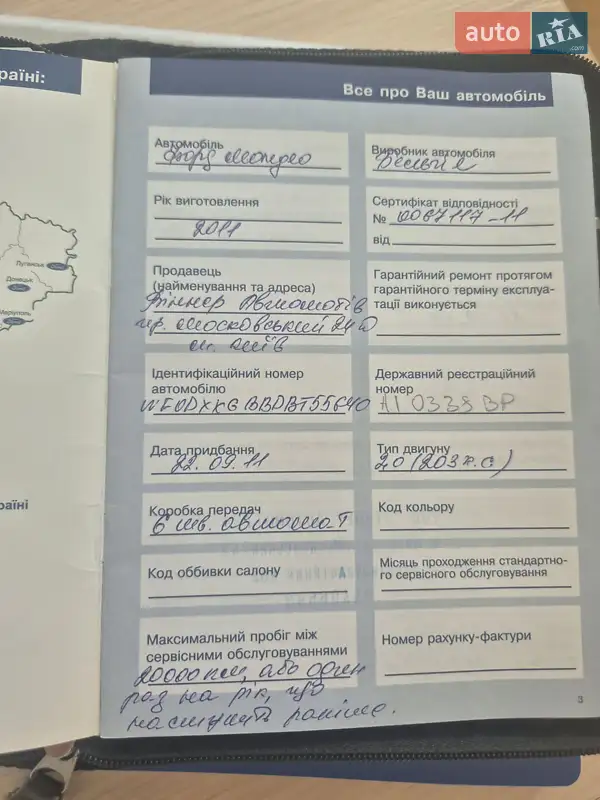 auto RIA .com
раїні:
Все про Ваш автомобіль
Автомобіль
Форд Мондео
Виробник автомобіля
Бельгія
Рік виготовлення
2011
Сертифікат відповідності
№ 0067117-11
від
Продавець
(найменування та адреса)
Віннер Автомотів
пр. Московський 24 Ю
м. Київ
Гарантійний ремонт протягом
гарантійного терміну експлуа-
тації виконується
Ідентифікаційний номер
автомобілю
WF0DXXGBBDBT55640
Державний реєстраційний
номер
АІ 0338 ВР
Дата придбання
22.09.11
Тип двигуну
2.0 (203 к.с)
Коробка передач
6 ст. автомат
Код кольору
Код оббивки салону
Місяць проходження стандартно-
го сервісного обслуговування
Максимальний пробіг між
сервісними обслуговуваннями
20000 км, або один
раз на рік, що
наступить раніше.
Номер рахунку-фактури
3
Луганськ
Донецьк
Маріуполь
раїні